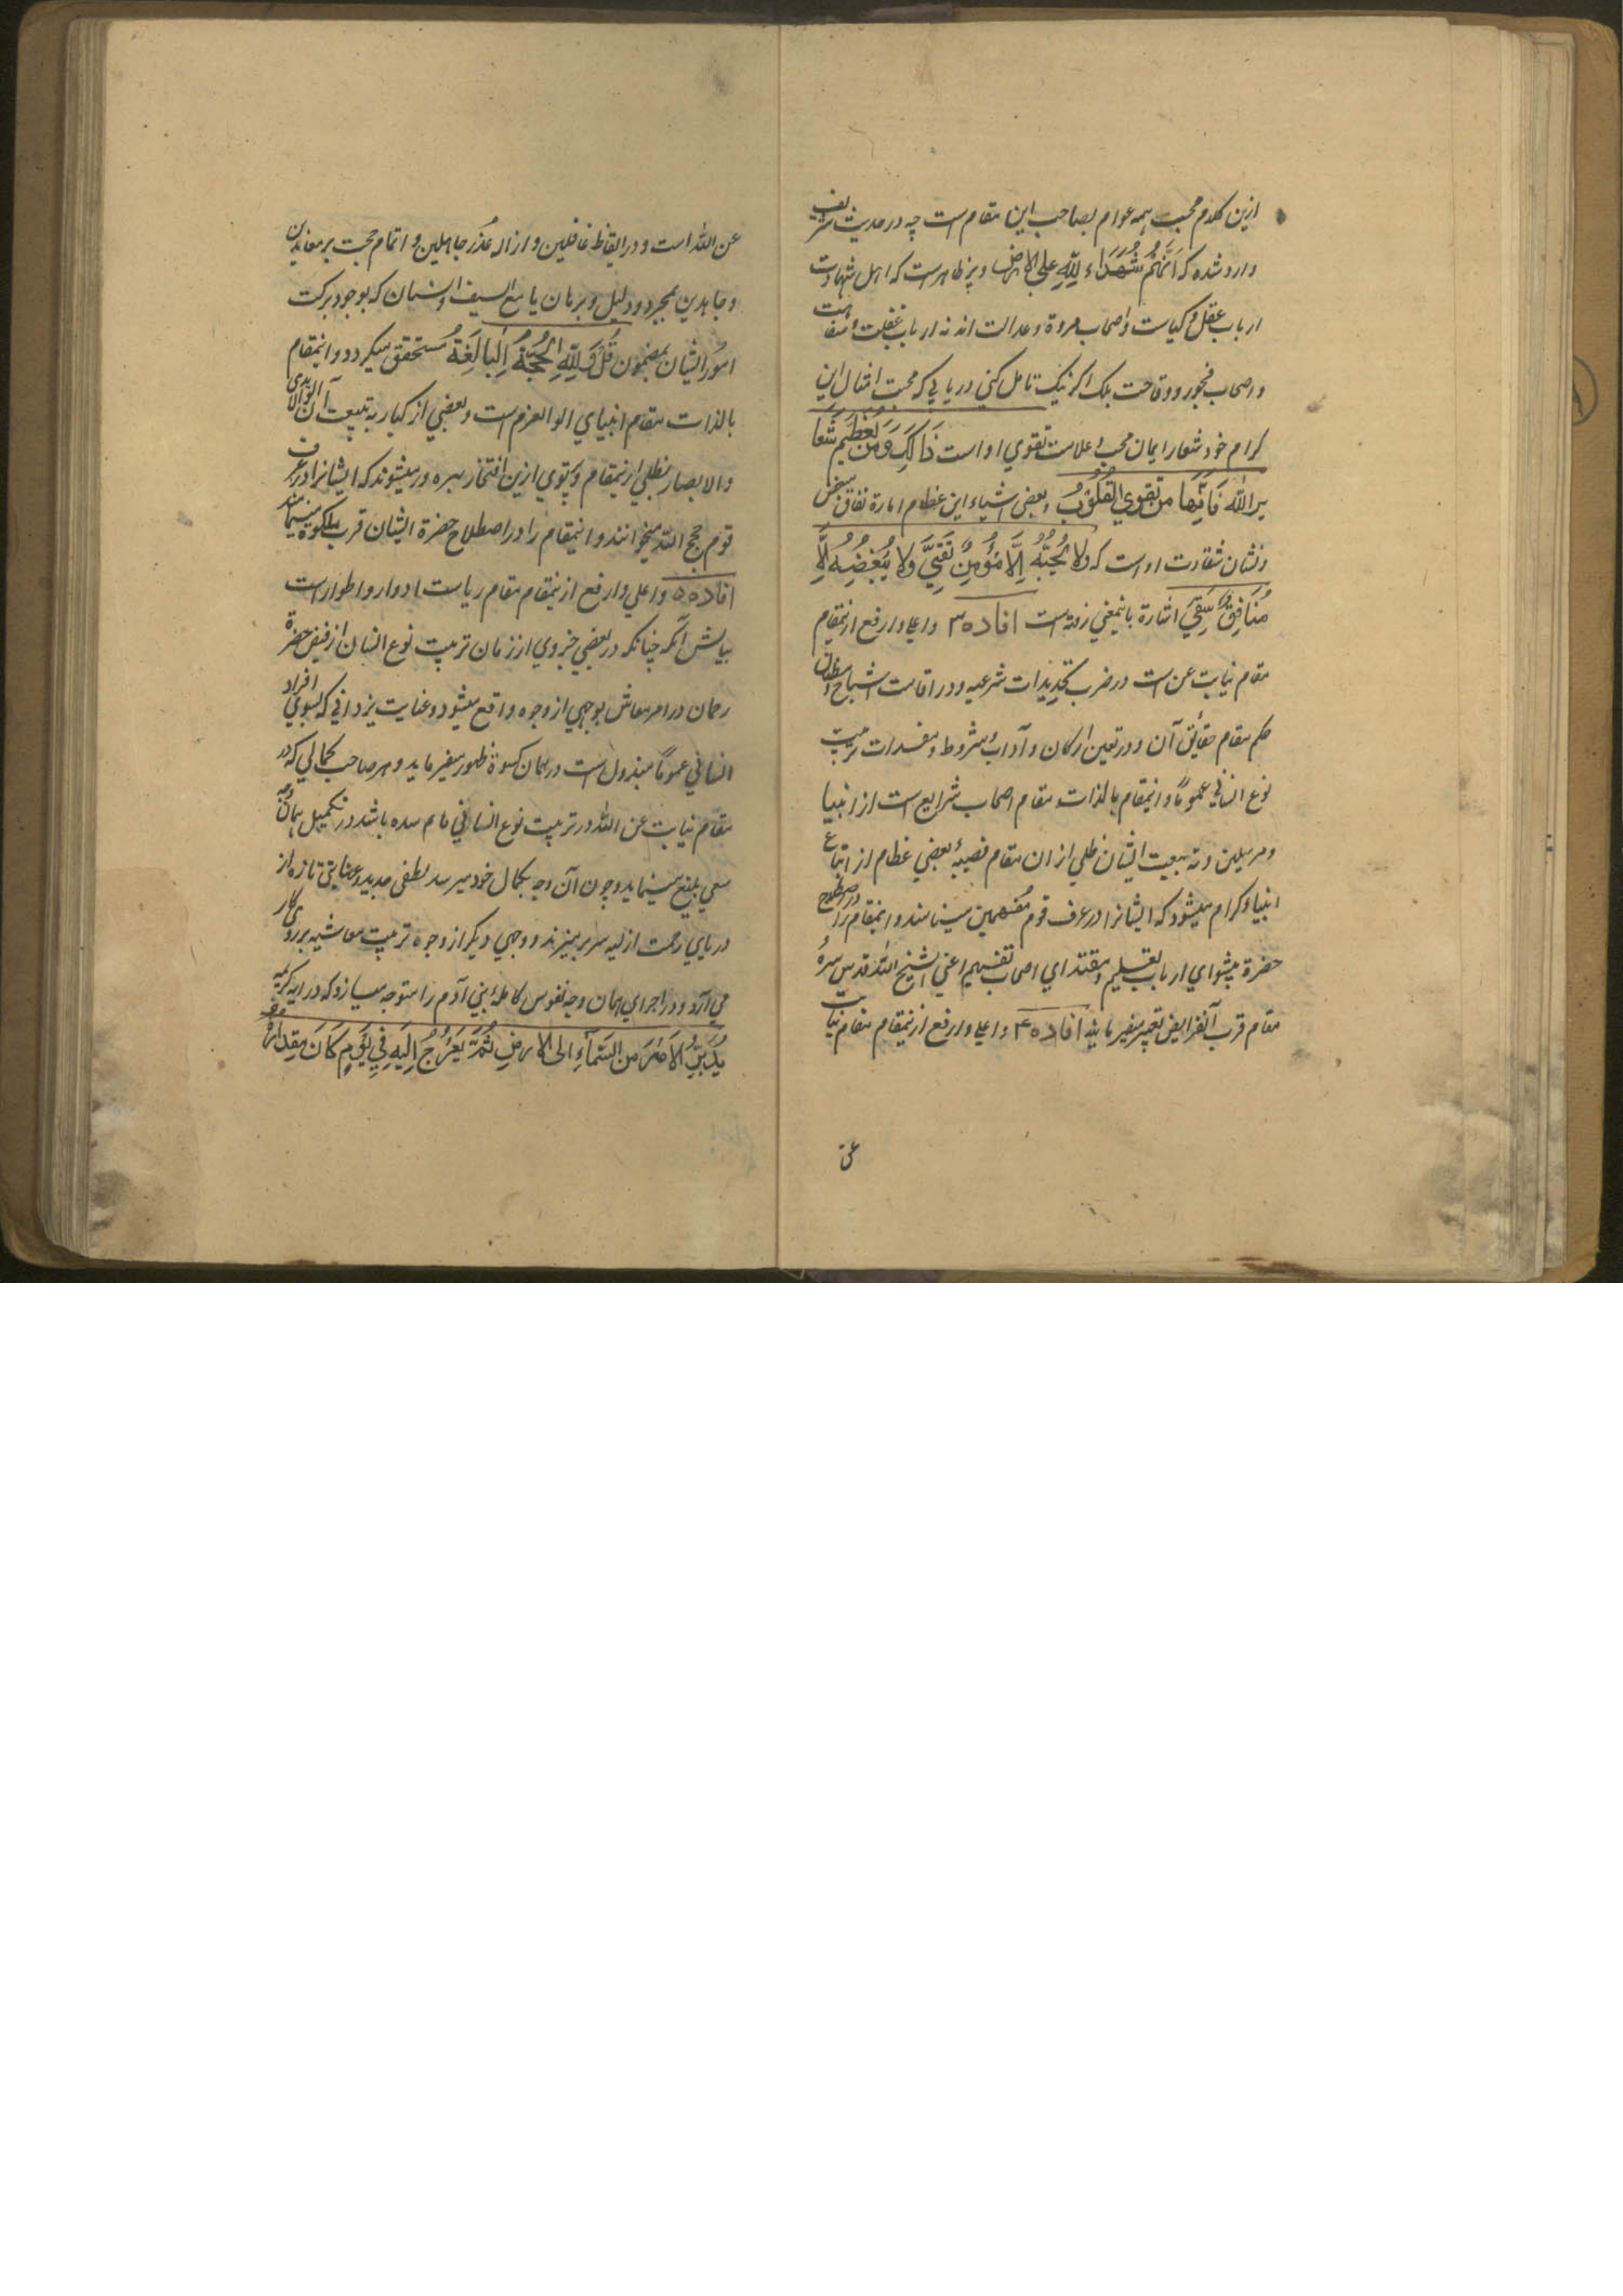 ازین کلام محبت همه عوام بصاحب این مقام است چه در حدیث شریف
وارد شده که انهم شُهَدَاء لِلّٰهِ علی الارض و پر ظاهر است که اهل شهادت
ارباب عقل و کیاست و اصحاب مروة و عدالت اند نه ارباب غفلت و سفاهت
و اصحاب فجور و وقاحت بلکه اگر نیک تامل کنی دریابی که محبت امثال این
کرام خود شعار ایمان محب و علامت تقوی او است ذَالِكَ وَمَن يُعَظِّم شَعَا
ئر الله فَاِنَّها من تقوی القُلُوْب و بعض اشباه این عظام امارة نفاق مبغض
و نشان شقاوت او است که ولا یُحِبُّهُ اِلَّا مُؤمِنٌ تَقِيٌّ وَلا يُبْغِضُهُ اِلَّا
مُنَافِقٌ شَقِيٌّ اشارة باینمعنی زفته است افاده ۳ و اعلی و ارفع ازینمقام
مقام نیابت عن است در ضرب تحدیدات شرعیه و در اقامت اشباح و مظان
حکم مقام حقائق آن و در تعین ارکان و آداب و شروط و مفسدات تربیت
نوع انسانی عموماً و اینمقام بالذات مقام اصحاب شرایع است از انبیا
و مرسلین و به تبعیت ایشان ظلی ازان مقام نصیبهٔ بعضی عظام از اتباع
انبیاء کرام میشود که ایشانرا در عرف قوم مُفَهمین مینامند و اینمقام را در اصطلاح
حضرة پیشوای ارباب تعلیم و مقتدای اصحاب تفهیم اعنی الشیخ الله قدس سرهٔ
مقام قرب الفرایض تعبیر میفرمایند افاده ۴ و اعلی و ارفع ازینمقام مقام نیابت
عن
عن الله است و در ایقاظ غافلین و ازاله عُذر جاهلین و اتمام حجت بر معاندین
و جاهدین بمجرد دلیل و برهان یا مع السیف و السنان که بوجود برکت
امور ایشان بمضمون قُلْ فَلِلّٰهِ الحُجَّةُ البَالِغَةُ مُستحقق میگردد و اینمقام
بالذات مقام انبیای الو العزم است و بعضی از کبار به تبعیت آن اولوالایدی
والابصار بظلی ازینمقام و پرتوی ازین افتخار بهره ور میشوند که ایشانرا در عرف
قوم حجج الله میخوانند و اینمقام را در اصطلاح حضرة ایشان قرب ملکوت مینمایند
افاده ۵ و اعلی و ارفع ازینمقام مقام ریاست ادوار و اطوار است
بیانش آنکه چنانکه در بعضی جزوی از زمان تربیت نوع انسان از فیض حضرة
رحمان در امر معاش بوجهی از وجوه واقع میشود و عنایت یزدانی که بسوی افراد
انسانی عموماً مبذول است در همان کسوة ظهور میفرماید و هر صاحب کمالی که در
مقام نیابت عن الله در تربیت نوع انسانی قائم شده باشد در تکمیل همان وجه
سعی بلیغ مینماید و چون آن وجه بکمال خود میرسد لطفی جدید و عنایتی تازه از
دریای رحمت ازلیه سر بر میزند و وجهی دیگر از وجوه تربیت معاشیه بر روی کار
می آرد و در اجرای همان وجه نفوس کاملهٔ بنی آدم را متوجه میسازد که در ایه کریمه
یُدَبِّرُ الاَمْرَ مِنَ السَّمآءِ الی الارضِ ثُمَّ یَعْرُجُ اِلَیهِ فِی یَوْمٍ کَانَ مِقدارُهُ